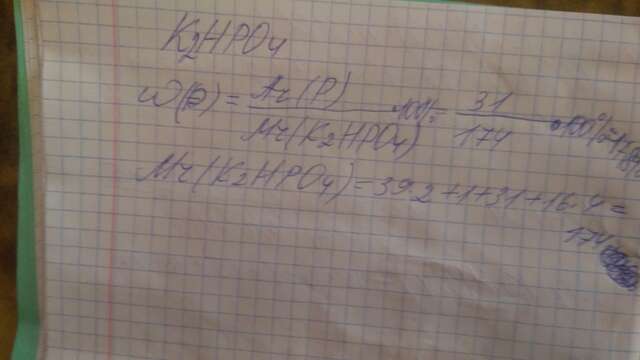 K₂HPO₄
W(P) = Ar(P) / Mr(K₂HPO₄) · 100% = 31 / 174 · 100% =
Mr(K₂HPO₄) = 39·2+1+31+16·4 =
174